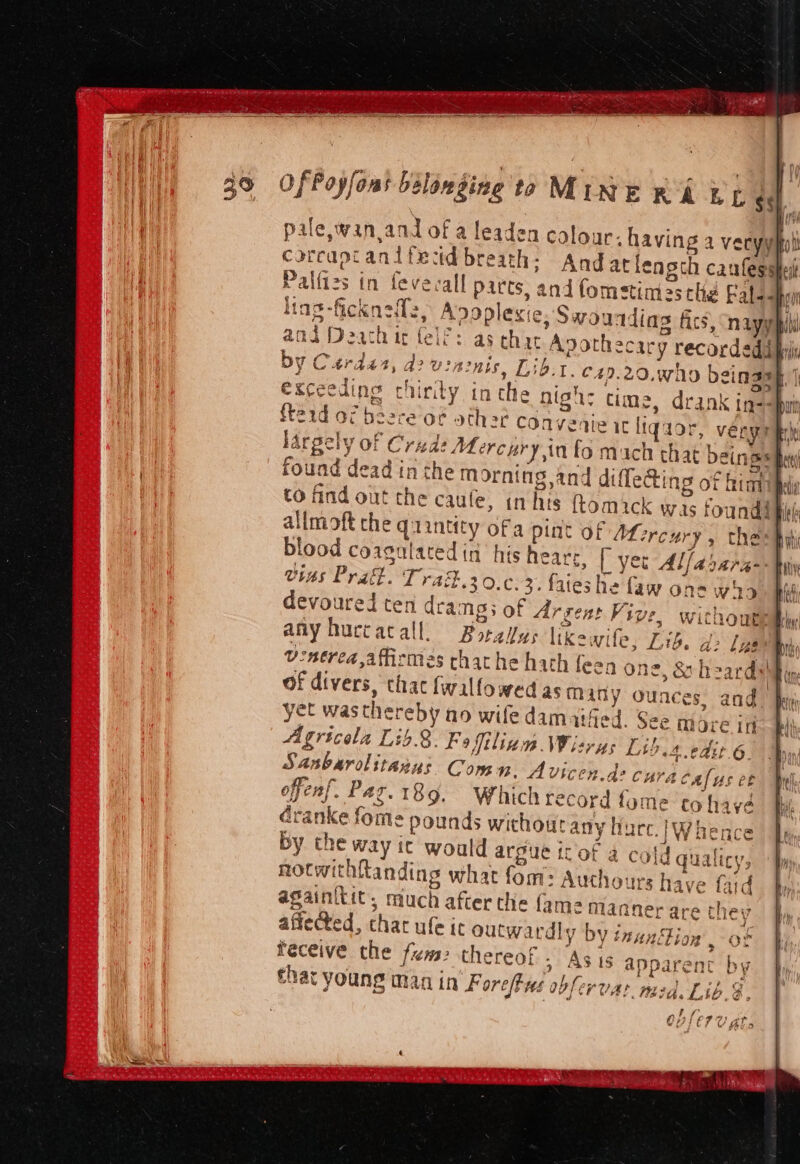 30 Of Poysons belonging to MINERALLS
pale,wan,and of a leaden colour: having a very
corrupt and fœtid breath; And at length causess
Palsies in severall parts, and somstimes the Fal-
ling-sicknesse, Apoplexie, Swounding fits, nay
and Death it self: as that Apothecary recorded
by Cardan, de venenis, Lib.1. cap.20.who being
exceeding thirsty in the night time, drank in-
stead of beere or other convenient liquor, very
largely of Crude Mercury,in so much that being
found dead in the morning,and dissecting of him
to find out the cause, in his stomack was found
allmost the quantity of a pint of Mercury, the
blood coagulated in his heart, [ yet Alsabara-
vius Pract. Tract.30.c.3. saies he saw one who
devoured ten dramgs of Argent Vive, without
any hurt at all. Botallus likewise, Lib. de lue
venerea,affirmes that he hath seen one, & heard
of divers, that swallowed as many ounces, and
yet was thereby no wise damnified. See more in
Agricola Lib.8. Fossilium.Wierus Lib.4.edit 6.
Sanbarolitanus Comm. Avicen.de cura casus et
offens. Pag.189. Which record some to have
dranke some pounds without any hurt.] Whence
by the way it would argue it of a cold quality,
notwithstanding what som: Authours have said
against it; much after the same manner are they
affected, that use it outwardly by inunction, or
receive the fume thereof; As is apparent by
that young man in Forestus observat. med. Lib.8.
observat.